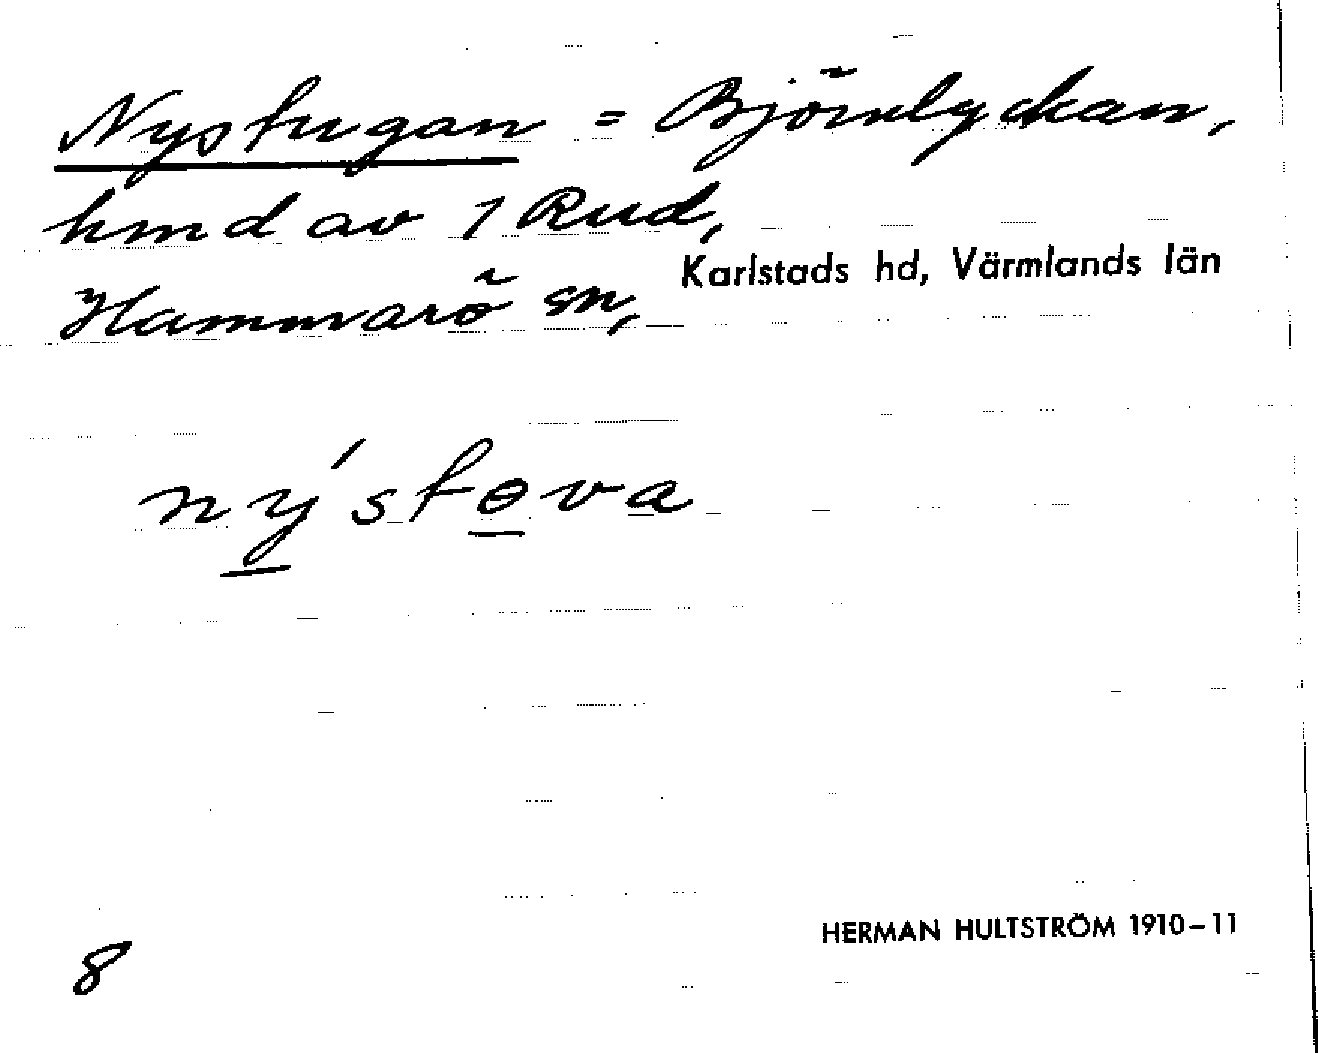 Nystugan = Björnlyckan,
hmd av 1 Rud,
Karlstads hd, Värmlands län
Hammarö sn,
ny´stɵva
HERMAN HULTSTRÖM 1910-11
8